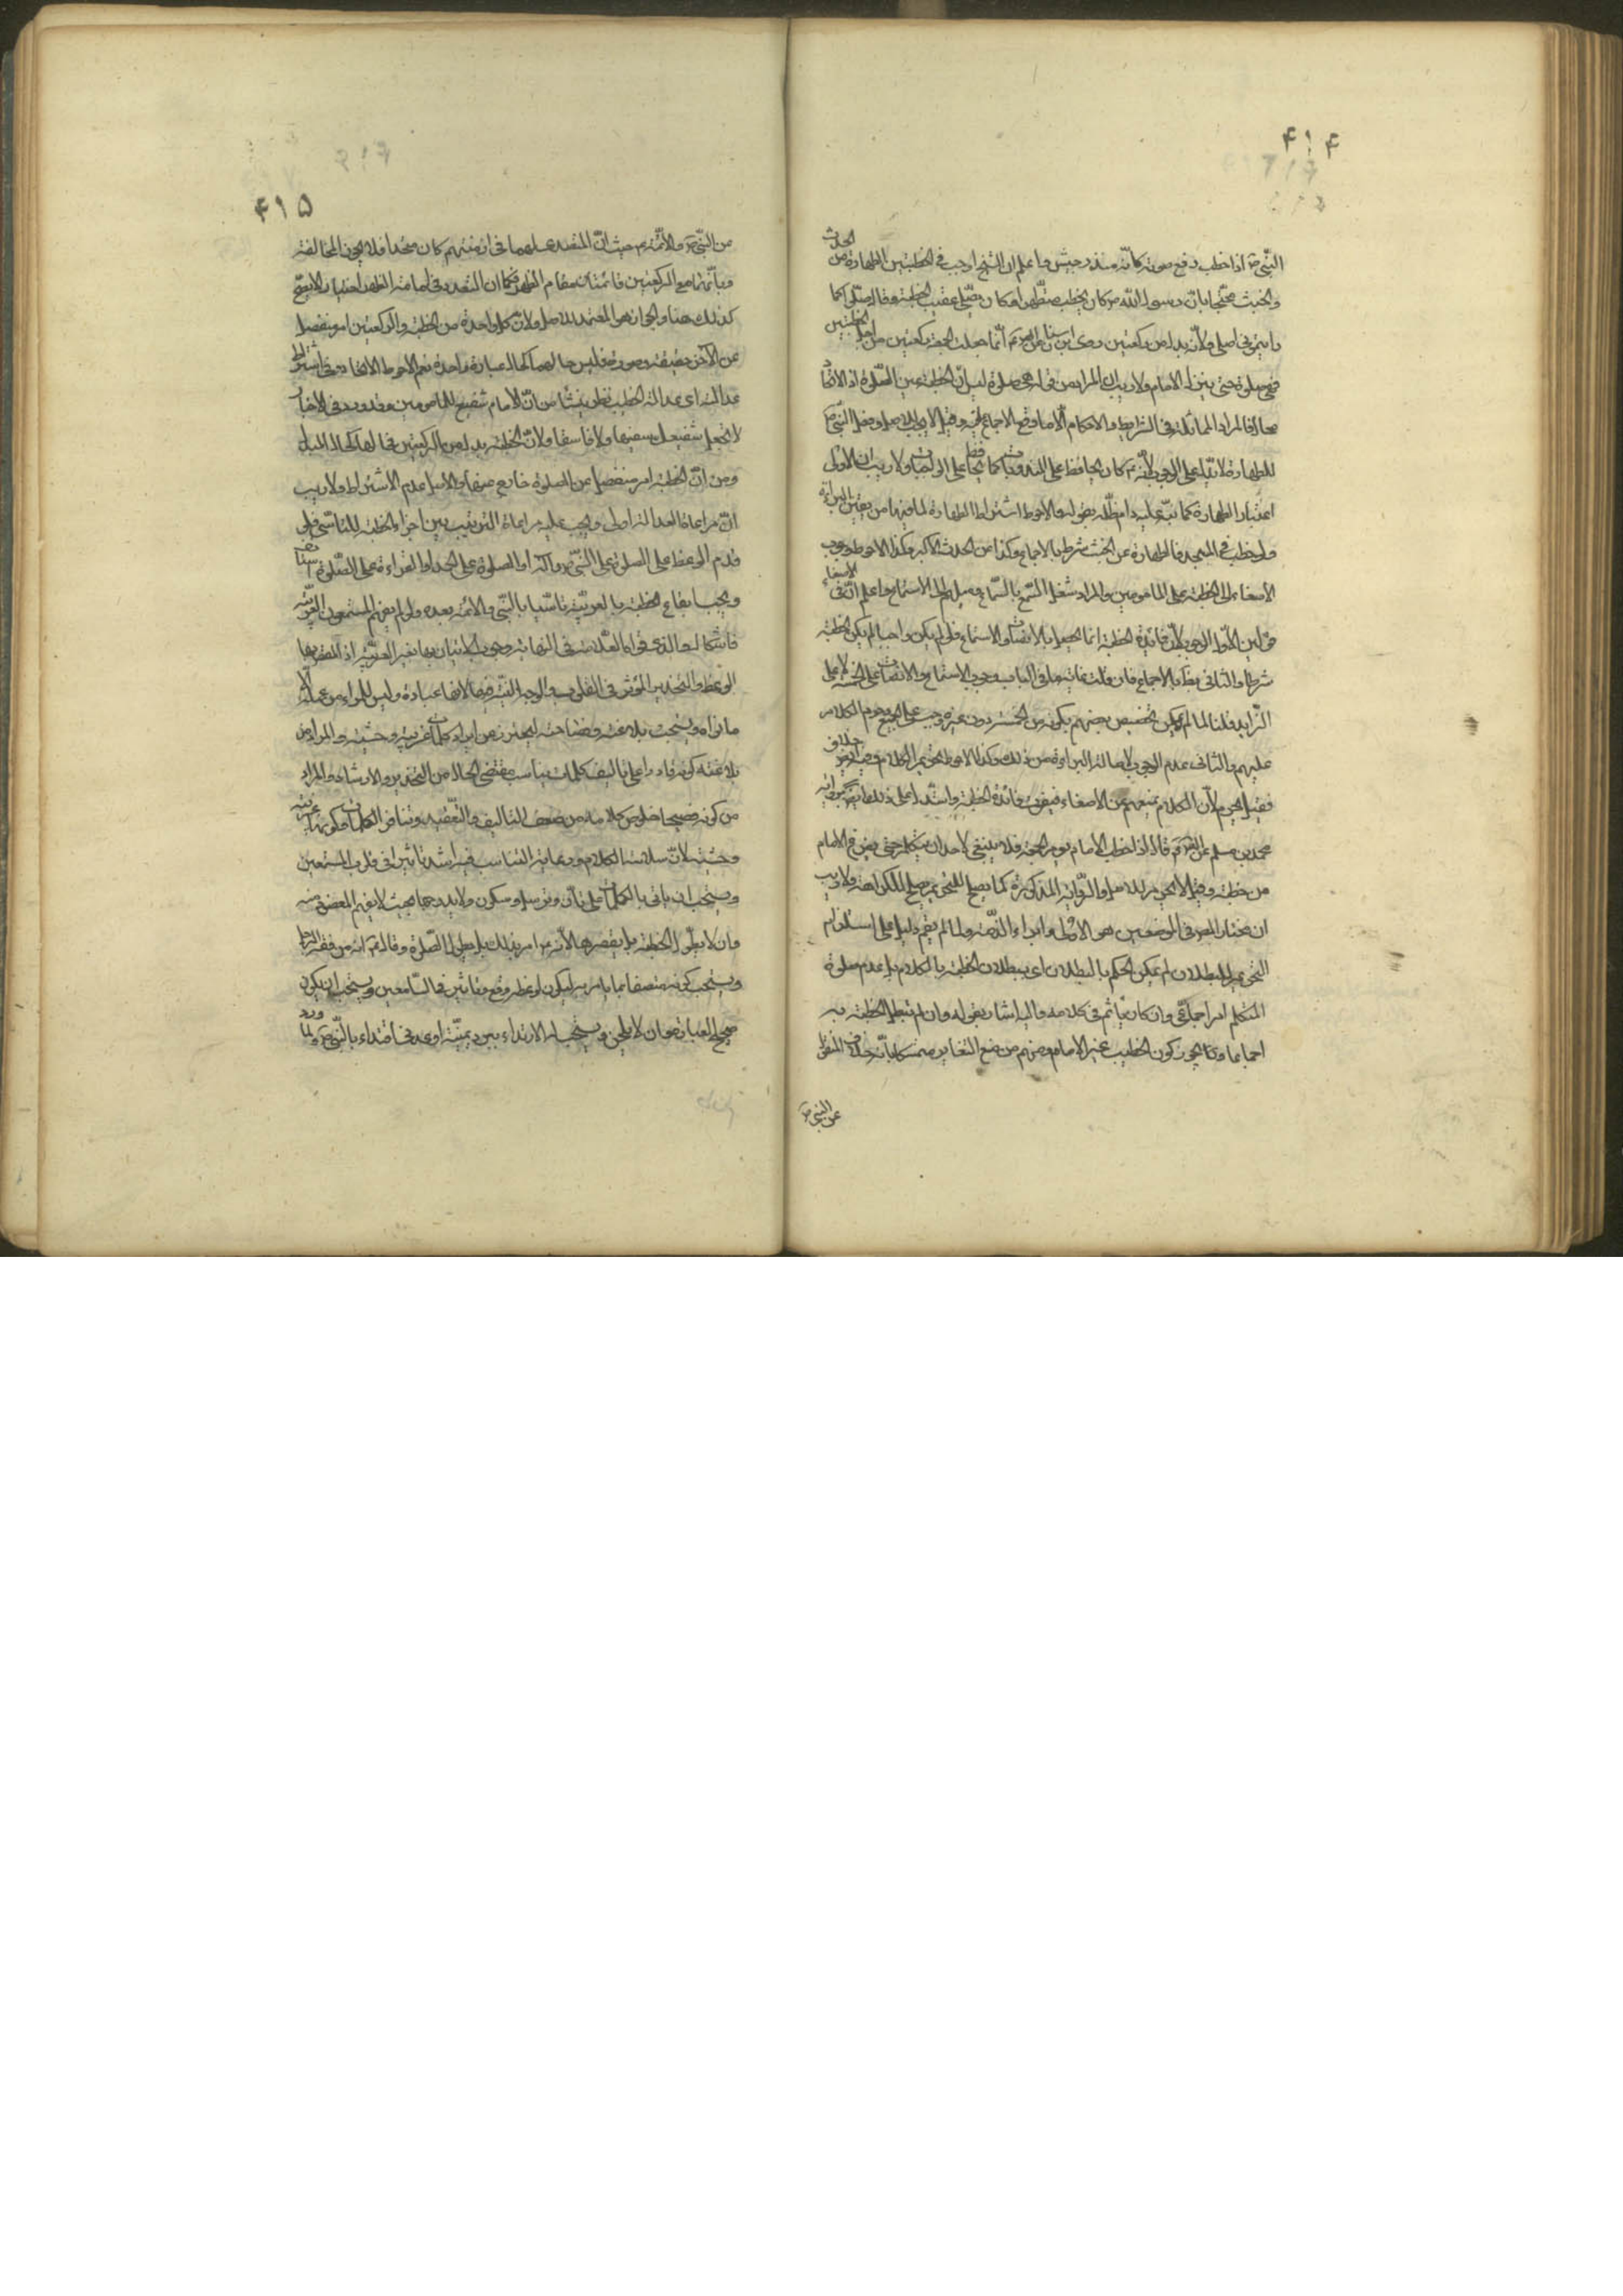 ۴۱۴
النبی ص اذا خطب رفع صوته کانه منذر جیش و اعلم ان الشیخ اوجب فی الخطبتین الطهارة من الحدث
والخبث محتجا بان رسول الله ص کان یخطب متطهرا و کان یصلی عقیب الخطبة و قال صلوا کما
رایتمونی اصلی ولانه بدل من رکعتین روی ابن سنان عن الص ع انما جعلت الجمعة رکعتین من اجل الخطبتین
فهی صلوة حتی ینزل الامام ولا ریب ان المراد من قوله هی صلوة لیس ان الخطبة عین الصلوة اذ الاتحاد
محال فالمراد المماثلة فی الشرایط والاحکام الا ما وقع الاجماع وقیل لا یجب للاصل وفعل النبی ص
للطهارة لا یدل علی الوجوب لانه ع کان یحافظ علی المندوبات کما یحافظ علی الواجبات ولا ریب ان الاولی
اعتبار الطهارة کما نبه علیه دام ظله بقوله والاحوط اشتراط الطهارة لما فیها من یقین البراءة
ولو خطب فی المسجد فالطهارة عن الخبث شرط بالاجماع وکذا من الحدث الاکبر وکذا الاحوط وجوب
الاصغاء الی الخطبة علی المامومین والمراد شغل السمع بالسماع ومیلهم الی الاستماع واعلم ان فی الاصغاء
قولین الاول الوجوب لان فائدة الخطبة انما تحصل بالانصات والاستماع فلو لم یکن واجبا لم یکن الخطبة
شرطا والثانی بط بالاجماع فان قلت غایة ما فی الباب وجوب الاستماع والانصات علی الخمسة لا علی
الزاید قلنا لما لم یکن تخصیص بعضهم بکونه من الخمسة دون غیره وجب علی الجمیع وحرم الکلام
علیهم والثانی عدم الوجوب لاصالة البراءة من ذلک وکذا الاحوط تحریم الکلام وفیه ایض خلاف
فقیل یحرم لان الکلام یمنعهم عن الاصغاء فیفوت فائدة الخطبة واستدل علی ذلک ایض بروایة
محمد بن مسلم عن الص ع قال اذا خطب الامام یوم الجمعة فلا ینبغی لاحد ان یتکلم حتی یفرغ الامام
من خطبته وقیل لا یحرم للاصل والروایة المذکورة کما یصلح للتحریم یصلح للکراهة ولا ریب
ان مختار المص فی الموضعین هو الاولی و ابراء الذمة ولما لم یقم دلیل علی استلزام
التحریم للبطلان لم یمکن الحکم بالبطلان ای ببطلان الخطبة بالکلام بل عدم صلوة
المتکلم امر اجماعی وان کان یاثم فی کلامه والیه اشار بقوله وان لم تبطل الخطبة به
اجماعا و یجوز کون الخطیب غیر الامام ومنهم من منع التغایر متمسکا بانه خلاف المنقول
عن النبی ص
۴۱۵
من النبی ص والائمة ع حیث ان المتصدی لهما فی ازمنتهم کان متحدا فلا یجوز المخالفة
وبانهما مع الرکعتین قائمتان مقام الظهر فکما ان التعدد فی امامة الظهر اختیارا لا یصح
کذلک هنا والجواز هو المعتمد للاصل ولان کل واحدة من الخطبة والرکعتین امر منفصل
عن الآخر حقیقة وصورة فلیس حالهما کحال عبادة واحدة نعم الاحوط الاتحاد وفی اشتراط
عدالته ای عدالة الخطیب نظر ینشأ من ان الامام شفیع للمامومین وقد ورد فی الاخبار
لا تجعل شفیعک سفیها ولا فاسقا ولان الخطبة بدل من الرکعتین فحالها کحال المبدل
ومن ان الخطبة امر منفصل عن الصلوة خارج عنها والاصل عدم الاشتراط ولا ریب
ان مراعاة العدالة اولی ویجب علیه مراعاة الترتیب بین اجزاء الخطبة للتاسی فلو
قدم الوعظ علی الصلوة علی النبی وآله او الصلوة علی الحمد او القراءة علی الصلوة استانف
ویجب ایقاع الخطبة بالعربیة تاسیا بالنبی والائمة بعده ولو لم یفهم المستمعون العربیة
فاشکال والذی قواه العلامة فی النهایة وجوب الاتیان بها بغیر العربیة اذ المقصود بها
الوعظ والتحذیر المؤثر فی القلوب والوجه النیة فیها لانها عبادة ولیس للمرء من عمله الا
ما نواه ویستحب بلاغته وفصاحته لیحترز من ایراد کلمات غریبة وحشیة والمراد من
بلاغته کونه قادرا علی تالیف کلمات یناسب مقتضی الحال من التحذیر والارشاد والمراد
من کونه فصیحا خلوص کلامه من ضعف التالیف والتعقید وتنافر الکلمات وکونها غریبة
وحشیة لان سلاسة الکلام ورعایة التناسب فیه اشد تاثیرا فی قلوب المستمعین
ویستحب ان یاتی بالکلمات علی تأن وترسل وسکون ولا یدرجها بحیث لا یفهم الغرض منه
وان لا یطول الخطبة بل یقصرها لانه ع امر بذلک بل بطول الصلوة وقال ع انه من فقه الرجل
ویستحب کونه متصفا بما یامر به لیکون لوعظه وقع وتاثیر فی السامعین ویستحب ان یکون
صحیح العبارة وان لا یلحن ویستحب له الارتداء ببرد یمنیة او عدنی اقتداء بالنبی ص ولما ورد